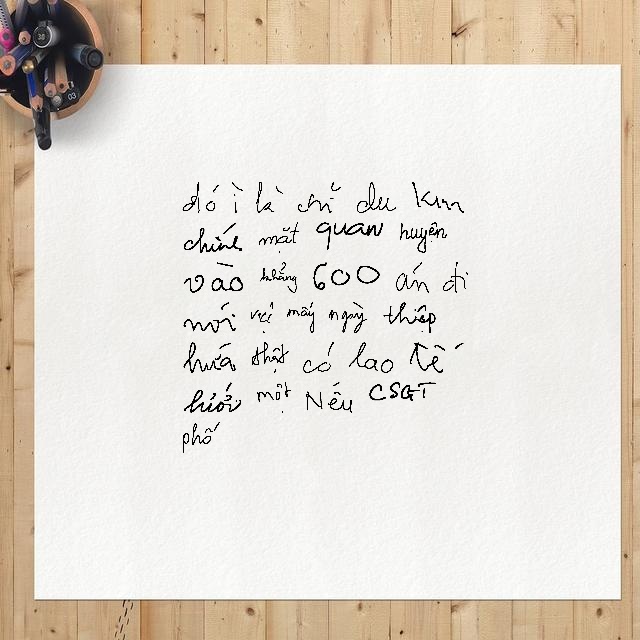 đó ì là chỉ du Kim
chính mặt quan huyện
vào khẳng 600 án đi
nói vệ mấy ngày thiệp
hứa thật có lao tế
hướt một Nếu CSGT
phố